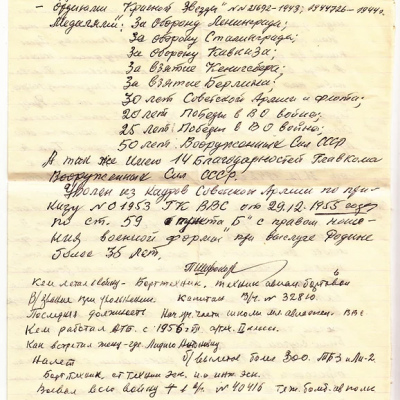 - орденами "Красной Звезды" №№ 21692-1943; 1944726-1944г.
Медалями: За Оборону Ленинграда;
За оборону Сталинграда;
За оборону Кавказа;
За взятие Кенигсберга;
За взятие Берлина;
30 лет Советской Армии и флота;
20 лет Победы в ВО войны;
25 лет Победы в ВО войны;
50 лет Вооруженных Сил СССР
А так же имею 14 Благодарностей Главкома
Вооруженных Сил СССР.
Уволен из кадров Советской Армии по при-
казу №01953 ГК ВВС от 29.12.1955 года
по ст. 59 "пункта Б" с правом ноше-
ния военной формы при выслуге Родине
более 35 лет.
Кем летал войну - Борттехник, техник авиац.
В/Звание при увольнении. Капитан В/ч. № 32810
Последняя должность Нач. уч. части школы мл. авиаспец. ВВС
Кем работал с 1956г
Как встретил жену - где Лидию
Налет б/вылетов более 300. ТБ3 и Ли-2
Борт. техник ст. техник эск. и.о. инж. эск.
Воевал всю войну в/ч. № 40416 тяж. бомб. авиа полк